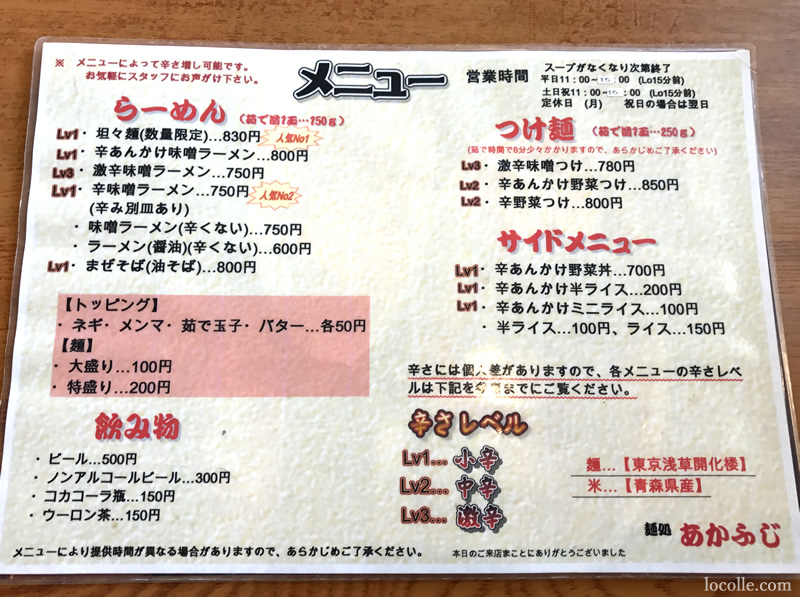 ※ メニューによって辛さ増し可能です。
お気軽にスタッフにお声がけ下さい。
メニュー
営業時間
スープがなくなり次第終了
平日11：00～15：00 (Lo15分前)
土日祝11：00～15：00 (Lo15分前)
定休日 (月) 祝日の場合は翌日
らーめん (茹で前1玉…150g)
Lv1・坦々麺(数量限定)…830円 人気No1
Lv1・辛あんかけ味噌ラーメン…800円
Lv3・激辛味噌ラーメン…750円
Lv1・辛味噌ラーメン…750円 人気No2
(辛み別皿あり)
・味噌ラーメン(辛くない)…750円
・ラーメン(醤油)(辛くない)…600円
Lv1・まぜそば(油そば)…800円
【トッピング】
・ネギ・メンマ・茹で玉子・バター…各50円
【麺】
・大盛り…100円
・特盛り…200円
飲み物
・ビール…500円
・ノンアルコールビール…300円
・コカコーラ瓶…150円
・ウーロン茶…150円
メニューにより提供時間が異なる場合がありますので、あらかじめご了承ください。
つけ麺 (茹で前1玉…250g)
(茹で時間で8分少々かかりますので、あらかじめご了承ください)
Lv3・激辛味噌つけ…780円
Lv2・辛あんかけ野菜つけ…850円
Lv2・辛野菜つけ…800円
サイドメニュー
Lv1・辛あんかけ野菜丼…700円
Lv1・辛あんかけ半ライス…200円
Lv1・辛あんかけミニライス…100円
・半ライス…100円、ライス…150円
辛さには個人差がありますので、各メニューの辛さレベ
ルは下記を参考までにご覧ください。
辛さレベル
Lv1…小辛
Lv2…中辛
Lv3…激辛
麺…【東京浅草開化楼】
米…【青森県産】
麺処 あかふじ
本日のご来店まことにありがとうございました
locolle.com